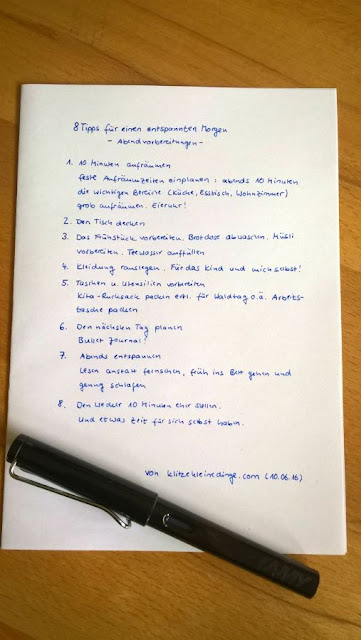 8 Tipps für einen entspannten Morgen
- Abendvorbereitungen -
1. 10 Minuten aufräumen
feste Aufräumzeiten einplanen: abends 10 Minuten
die wichtigen Bereiche (Küche, Esstisch, Wohnzimmer)
grob aufräumen. Eieruhr!
2. Den Tisch decken
3. Das Frühstück vorbereiten. Brotdose abwaschen, Müsli
vorbereiten. Teewasser auffüllen
4. Kleidung rauslegen. Für das Kind und mich selbst!
5. Taschen u. Utensilien vorbereiten
Kita-Rucksack packen evtl. für Waldtag o.ä. Arbeits-
tasche packen
6. Den nächsten Tag planen
Bullet Journal!
7. Abends entspannen
Lesen anstatt fernsehen, früh ins Bett gehen und
genug schlafen
8. Den Wecker 10 Minuten eher stellen.
Und etwas Zeit für sich selbst haben.
von klitzekleinedinge.com (10.06.16)
LAMY